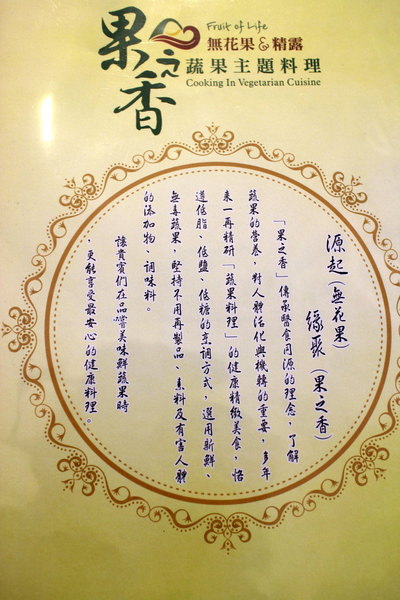 果之香
Fruit of Life
無花果&精露
蔬果主題料理
Cooking In Vegetarian Cuisine
源起(無花果)
緣聚(果之香)
「果之香」傳承醫食同源的理念，了解
蔬果的營養，對人體活化與機轉的重要，多年
來一再精研「蔬果料理」的健康精緻美食，恪
遵低脂、低鹽、低糖的烹調方式，選用新鮮、
無毒蔬果，堅持不用再製品、素料及有害人體
的添加物、調味料。
讓貴賓們在品嚐美味鮮蔬果時
，更能享受最安心的健康料理。